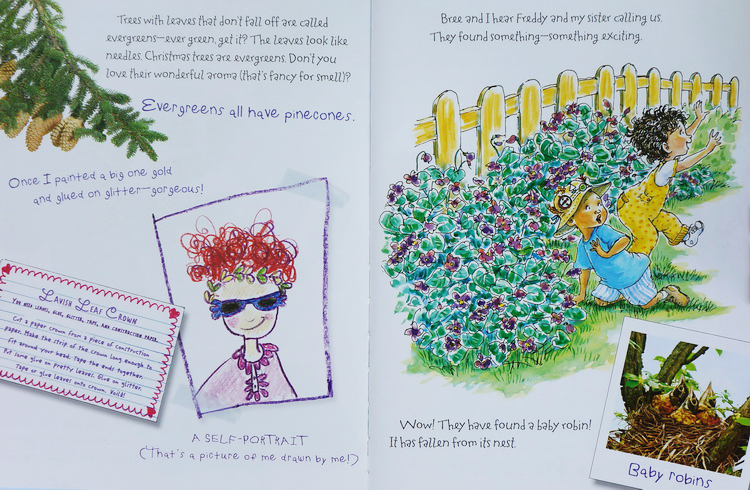 Trees with leaves that don't fall off are called
evergreens—ever green, get it? The leaves look like
needles. Christmas trees are evergreens. Don't you
love their wonderful aroma (that's fancy for smell)?
Evergreens all have pinecones.
Once I painted a big one gold
and glued on glitter—gorgeous!
Lavish Leaf Crown
You need leaves, glue, glitter, tape, and construction paper.
Cut a paper crown from a piece of construction
paper. Make the strip of the crown long enough to
fit around your head. Tape the ends together.
Put some glue on pretty leaves. Sprinkle on glitter.
Tape or glue leaves onto crown. Voilà!
A SELF-PORTRAIT
(That's a picture of me drawn by me!)
Bree and I hear Freddy and my sister calling us.
They found something—something exciting.
Wow! They have found a baby robin!
It has fallen from its nest.
Baby robins